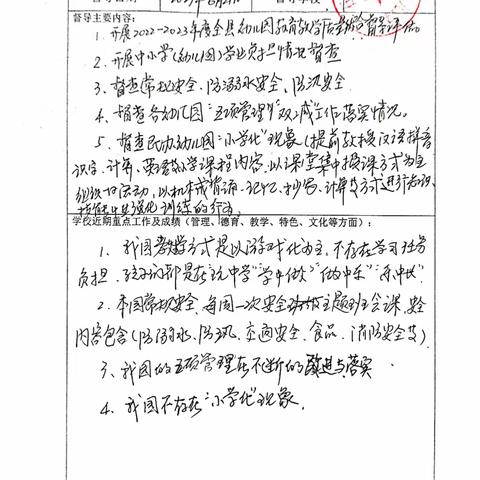 督导主要内容：
1. 开展2022-2023年度全县幼儿园教育教学质量检验督导评估。
2. 开展中小学(幼儿园)学业负担情况督查
3. 督查常规安全、防溺水安全、防汛安全
4. 督查各幼儿园"五项管理"、"双减"工作落实情况。
5. 督查民办幼儿园"小学化"现象(提前教授汉语拼音
识字、计算、英语等小学课程内容，以课堂集中授课方式为主
组织活动，以机械背诵、记忆、抄写、计算等方式进行知识
技能性强化训练的行为。
学校近期重点工作及成绩（管理、德育、教学、特色、文化等方面）：
1、我园教学方式是以游戏化为主，不存在学习任务
负担，孩子们都是在玩中学"学中做""做中乐""乐中收"
2、本园常规安全，每周一次安全主题班会课，安全
内容包含(防溺水、防汛、交通安全、食品、消防安全等)
3、我园的五项管理在不断的改进与落实
4、我园不存在"小学化"现象。